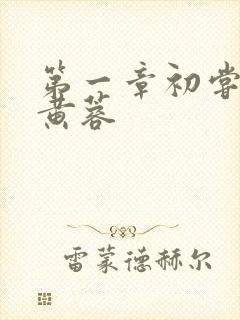 第一章初尝
黄蓉
雷蒙德赫尔